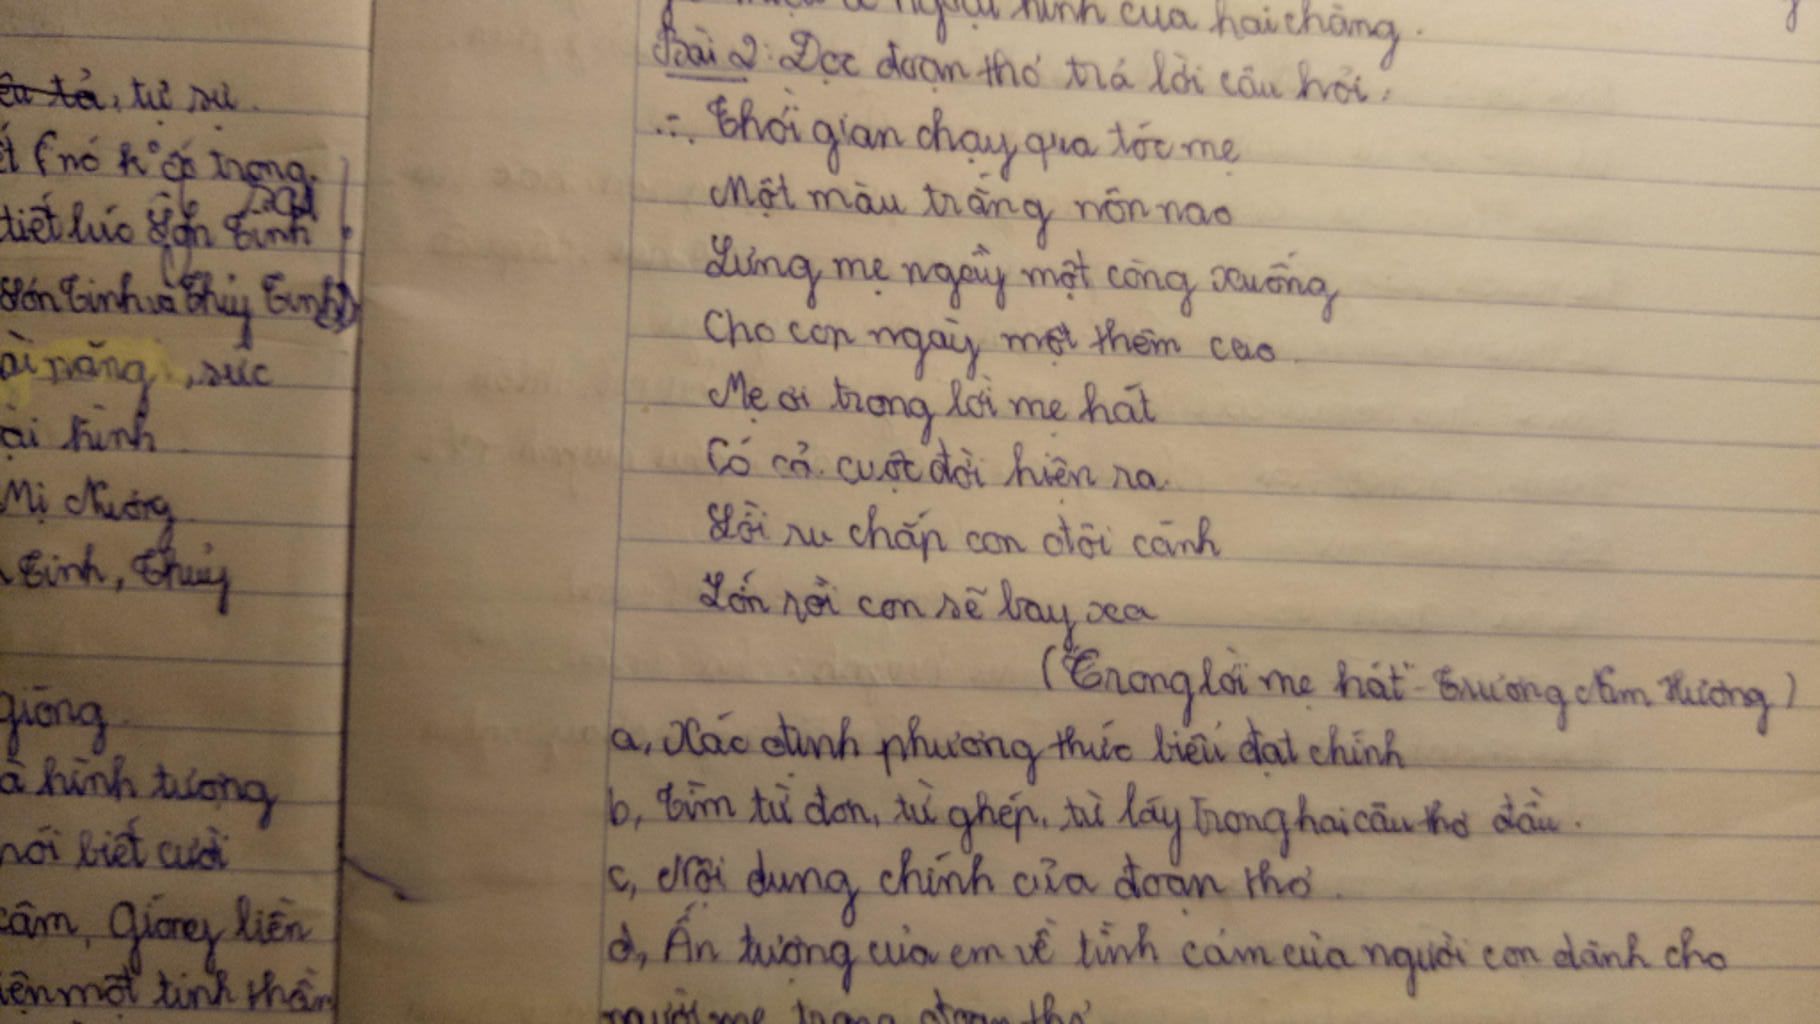 tả, tự sự.
tiết lúc Sơn Tinh
Sơn Tinh và Thủy Tinh
năng, sức
hình
Mị Nương
Tinh, Thủy
gióng
hình tượng
nói biết cười
cầm, Gióng liền
một tinh thần
ngoại hình của hai chàng.
Bài 2: Đọc đoạn thơ trả lời câu hỏi.
Thời gian chạy qua tóc mẹ
Một màu trắng nôn nao
Lưng mẹ ngày một còng xuống
Cho con ngày một thêm cao
Mẹ ơi trong lời mẹ hát
Có cả cuộc đời hiện ra
Lời ru chắp con đôi cánh
Lớn rồi con sẽ bay xa
("Trong lời mẹ hát" - Trương Nam Hương)
a, Xác định phương thức biểu đạt chính
b, Tìm từ đơn, từ ghép, từ láy trong hai câu thơ đầu.
c, Nội dung chính của đoạn thơ.
d, Ấn tượng của em về tình cảm của người con dành cho
người mẹ trong đoạn thơ